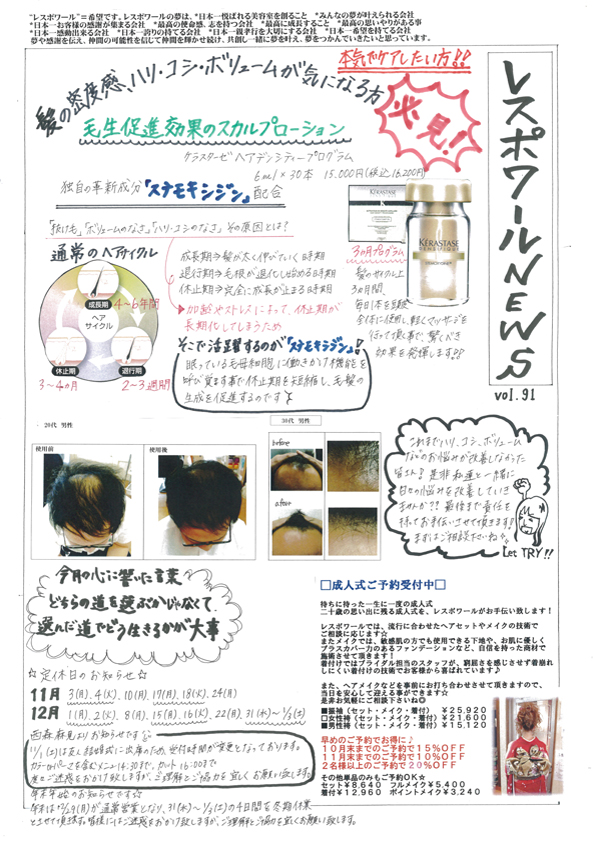 "レスポワール"=希望です。レスポワールの夢は、*日本一悦ばれる美容室を創ること *みんなの夢が叶えられる会社
*日本一お客様の感謝が集まる会社 *最高の使命感、志を持つ会社 *最高に成長すること *最高の思いやりがある事
*日本一感動出来る会社 *日本一誇りの持てる会社 *日本一親孝行を大切にする会社 *日本一希望を持てる会社
夢や感謝を伝え、仲間の可能性を信じて仲間を輝かせ続け、共創し一緒に夢を叶え、夢をつかんでいきたいと思っています。
本気でケアしたい方!!
髪の密度感、ハリ・コシ・ボリュームが気になる方
必見!
毛生促進効果のスカルプローション
ケラスターゼ ヘアデンシティープログラム
6ml×30本 15,000円(税込16,200円)
独自の革新成分「ステモキシジン」配合
レスポワールNEWS
vol.91
「抜け毛」「ボリュームのなさ」「ハリ・コシのなさ」その原因とは?
通常のヘアサイクル
成長期
ヘア
サイクル
休止期
退行期
4〜6年間
3〜4カ月
2〜3週間
成長期⇒髪が太く伸びていく時期
退行期⇒毛根が退化し始める時期
休止期⇒完全に成長が止まる時期
加齢やストレスによって、休止期が
長期化してしまうため
そこで活躍するのが「ステモキシジン」!
眠っている毛母細胞に働きかけ機能を
呼び覚ます事で休止期を短縮し、毛髪の
生成を促進するのです
KÉRASTASE
KÉRASTASE
DENSIFIQUE
3カ月プログラム
髪のサイクル上
3カ月間、
毎日1本を頭皮
全体に使用し、軽くマッサージを
行って頂く事で、驚くべき
効果を発揮します!!
20代 男性
使用前
使用後
30代 男性
before
after
これまでハリ、コシ、ボリューム
などのお悩みが改善しなかった
皆さん!是非私達と一緒に
自分の悩みを改善していき
ませんか??最後まで責任を
持ってお手伝いさせて頂きます!
まずはご相談下さいね
Let TRY!!
今月の心に響いた言葉
どちらの道を選ぶかじゃなくて、
選んだ道でどう生きるかが大事
☆定休日のお知らせ☆
11月 3(月).4(火).10(月).17(月).18(火).24(月)
12月 1(月).2(火).8(月).15(月).16(火).22(月).31(水)〜1/3(土)
西森麻見よりお知らせです
11/1(土)は友人結婚式に出席のため、受付時間が変更となっております。
カラーorパーマを含むメニュー14:30まで、カット16:00まで
度々ご迷惑をおかけ致しますが、ご理解とご協力を宜しくお願い致します。
年末年始のお知らせです☆
年末は12/29(月)が通常営業となり、31(水)〜1/3(土)の4日間を冬期休業
とさせて頂きます。皆様にはご迷惑をおかけ致しますが、ご理解とご協力を宜しくお願い致します。
□成人式ご予約受付中□
待ちに待った一生に一度の成人式
二十歳の思い出に残る成人式を、レスポワールがお手伝い致します!
レスポワールでは、流行に合わせたヘアセットやメイクの技術で
ご相談に応じます☆
またメイクでは、敏感肌の方でも使用できる下地や、お肌に優しく
プラスカバー力のあるファンデーションなど、自信を持った商材で
施術させて頂きます!
着付けではブライダル担当のスタッフが、窮屈さを感じさせず着崩れ
しにくい着付けの技術でお客様から喜ばれています♪
また、ヘアメイクなどを事前にお打ち合わせさせて頂きますので、
当日を安心して迎える事ができます☆
是非お気軽にご相談下さいね◎
■振袖(セット・メイク・着付) ¥25,920
□女性袴(セット・メイク・着付) ¥21,600
■男性袴(セット・メイク・着付) ¥15,120
早めのご予約でお得に♪
10月末までのご予約で15%OFF
11月末までのご予約で10%OFF
2名様以上のご予約で20%OFF
その他単品のみもご予約OK☆
セット¥8,640 フルメイク¥5,400
着付¥12,960 ポイントメイク¥3,240